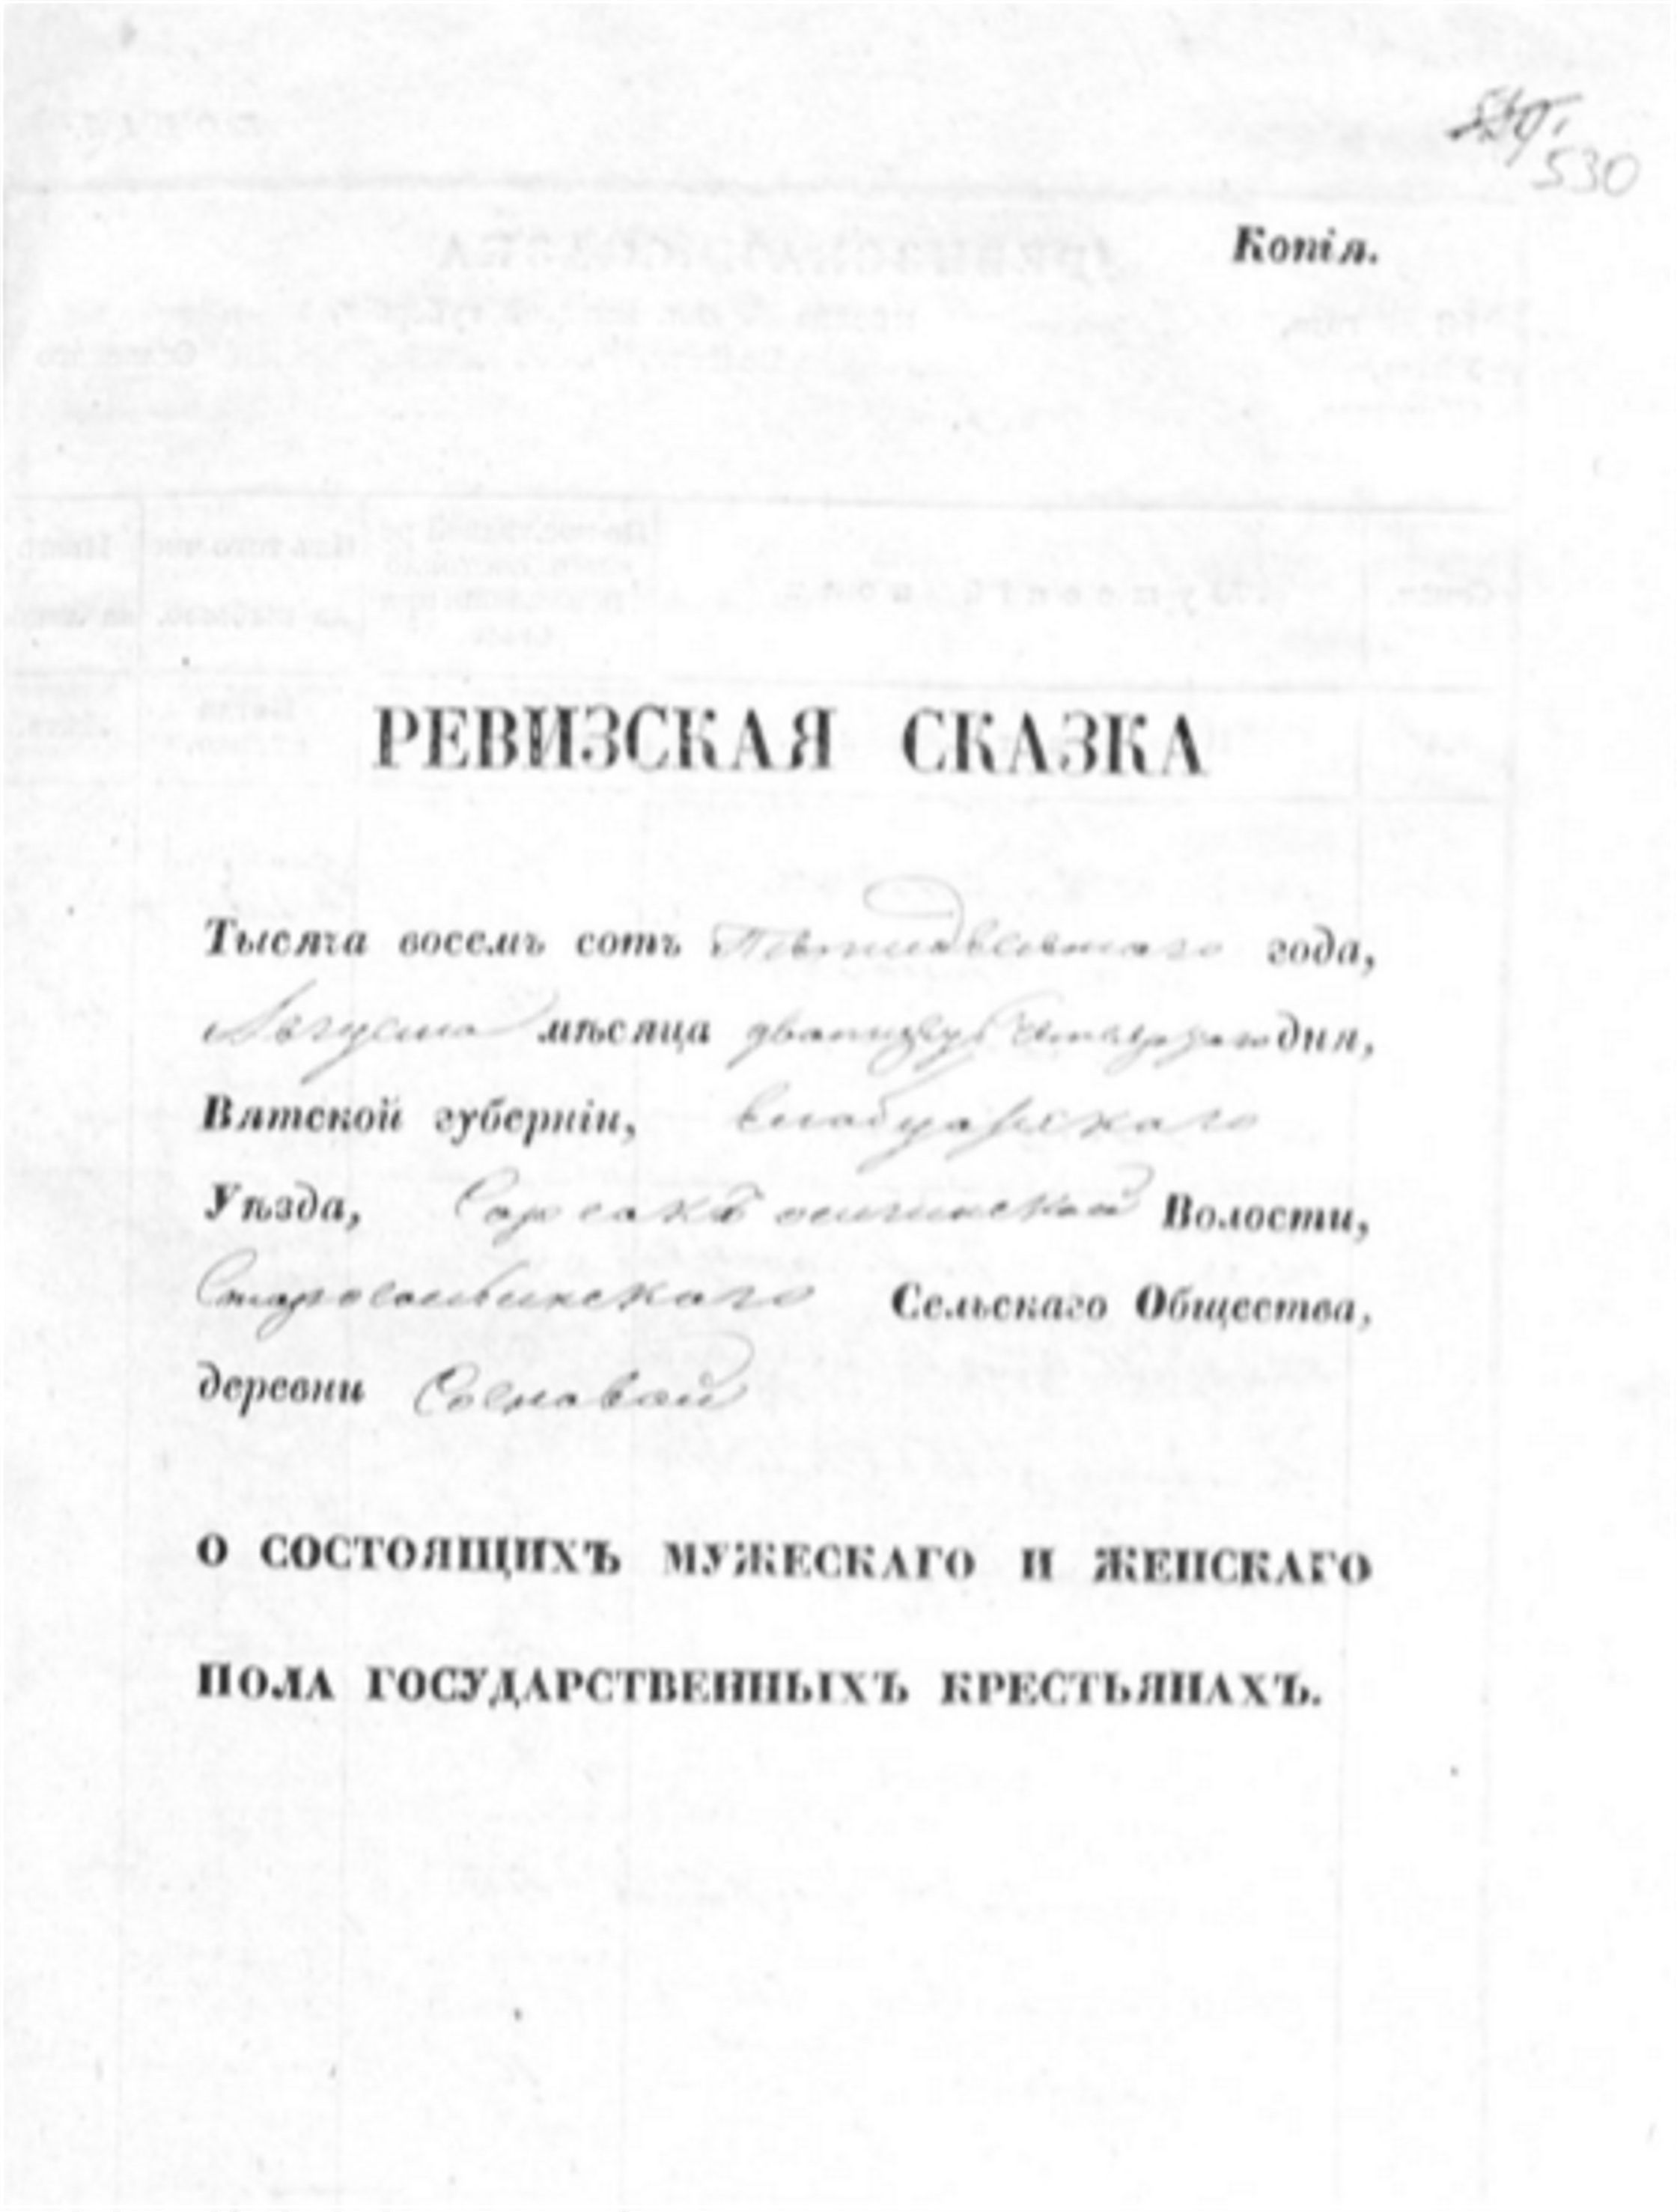 530
Копія.
РЕВИЗСКАЯ СКАЗКА
Тысяча восемь сотъ года,
Августа мѣсяца двадцать четвертаго дня,
Вятской губерніи, елабужскаго
Уѣзда, Волости,
Сельскаго Общества,
деревни Сосновой
О СОСТОЯЩИХЪ МУЖЕСКАГО И ЖЕНСКАГО
ПОЛА ГОСУДАРСТВЕННЫХЪ КРЕСТЬЯНАХЪ.